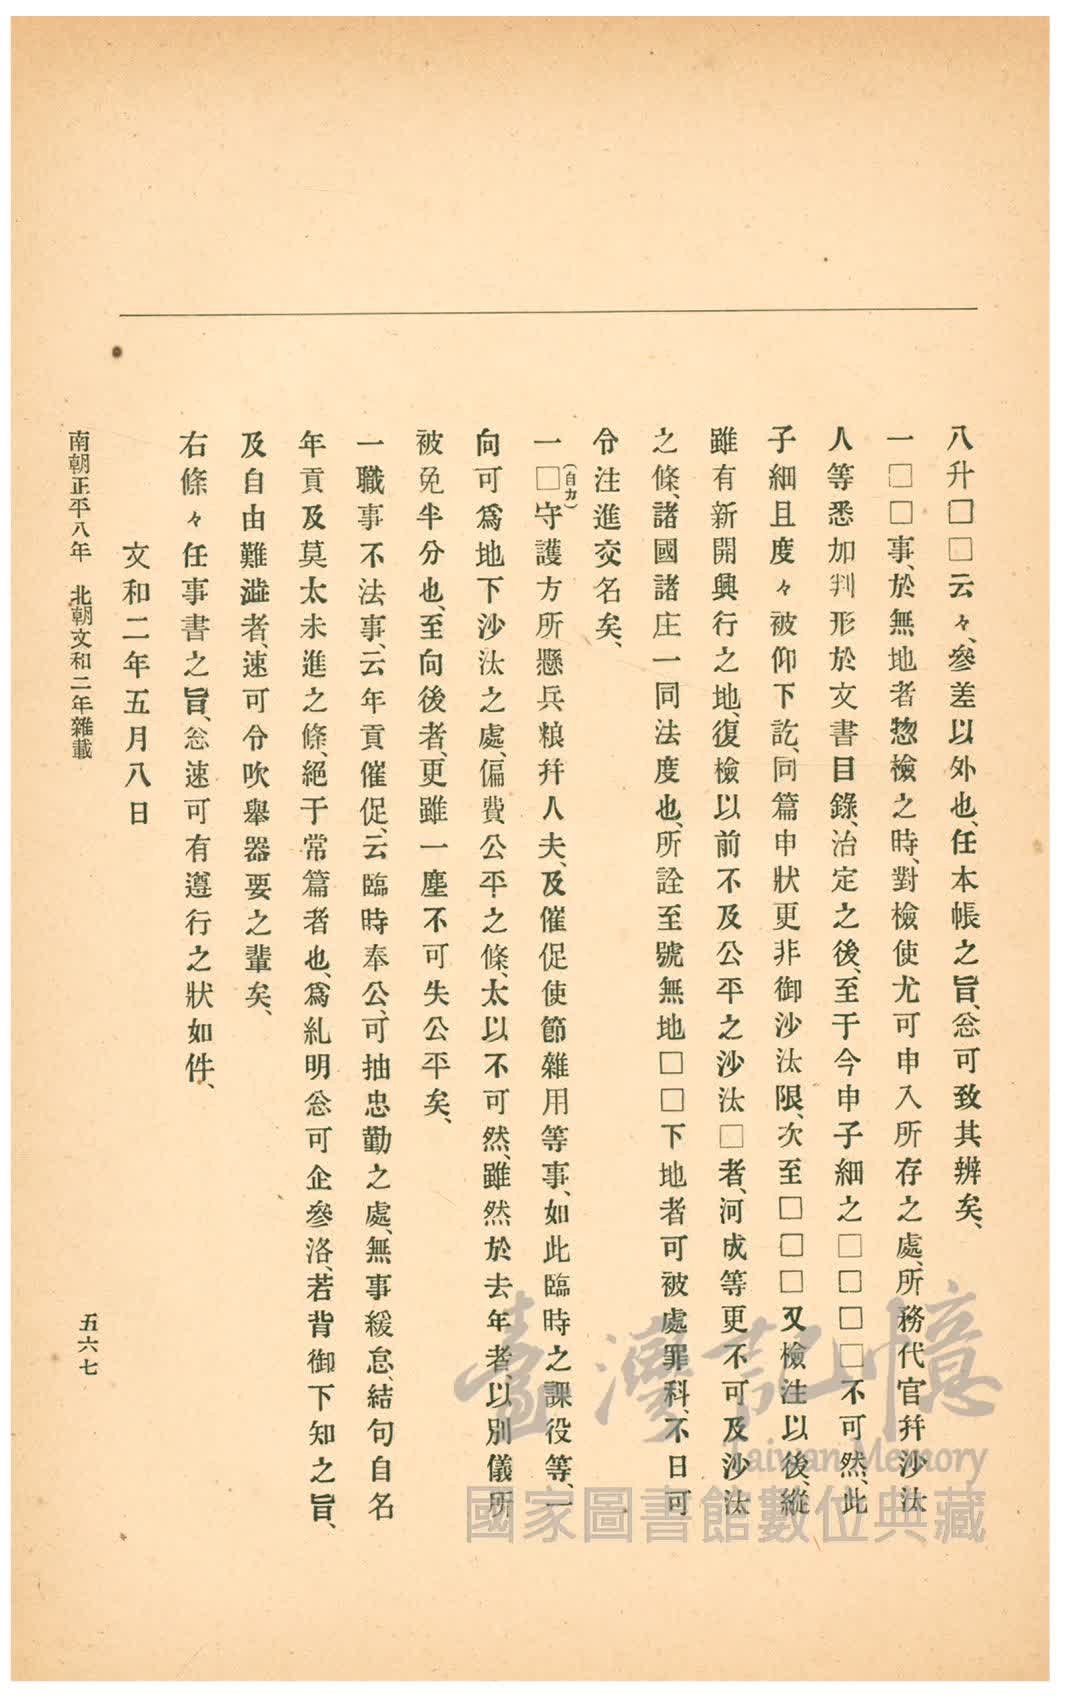 八升□□云々、參差以外也、任本帳之旨、忩可致其辨矣、
一□□事、於無地者惣檢之時、對檢使尤可申入所存之處、所務代官幷沙汰
人等悉加判形於文書目錄、治定之後、至于今申子細之□□□□不可然、此
子細且度々被仰下訖、同篇申狀更非御沙汰限、次至□□□又檢注以後、縱
雖有新開興行之地、復檢以前不及公平之沙汰□者、河成等更不可及沙汰
之條、諸國諸庄一同法度也、所詮至號無地□□下地者可被處罪科、不日可
令注進交名矣、
一□(自力)守護方所懸兵粮幷人夫、及催促使節雜用等事、如此臨時之課役等、一
向可爲地下沙汰之處、偏費公平之條、太以不可然、雖然於去年者、以別儀所
被免半分也、至向後者、更雖一塵不可失公平矣、
一職事不法事、云年貢催促、云臨時奉公、可抽忠勤之處、無事緩怠、結句自名
年貢及莫太未進之條、絕于常篇者也、爲糺明忩可企參洛、若背御下知之旨、
及自由難澁者、速可令吹舉器要之輩矣、
右條々任事書之旨、忩速可有遵行之狀如件、
文和二年五月八日
南朝正平八年　北朝文和二年雜載
五六七
臺灣記憶
Taiwan Memory
國家圖書館數位典藏